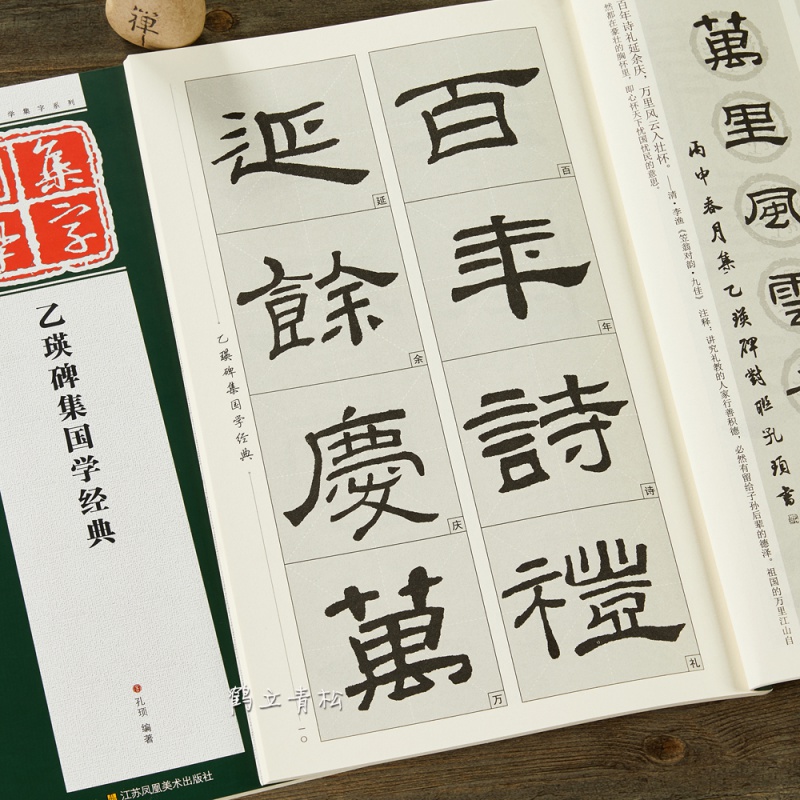 禅
学集字系列
集字
乙瑛碑集国学经典
孔顼 编著
江苏凤凰美术出版社
百年詩禮
百
年
诗
礼
延餘慶萬
延
余
庆
万
乙瑛碑集国学经典
一〇
萬里風雲
丙申春月集乙瑛碑對聯孔頊書
百年诗礼延余庆，万里风云入壮怀。——清·李渔《笠翁对韵·九佳》 注释：讲究礼教的人家行善积德，必然有留给子孙后辈的德泽。祖国的万里江山自
然都在豪壮的胸怀里，即心怀天下忧国忧民的意思。
鹤立青松